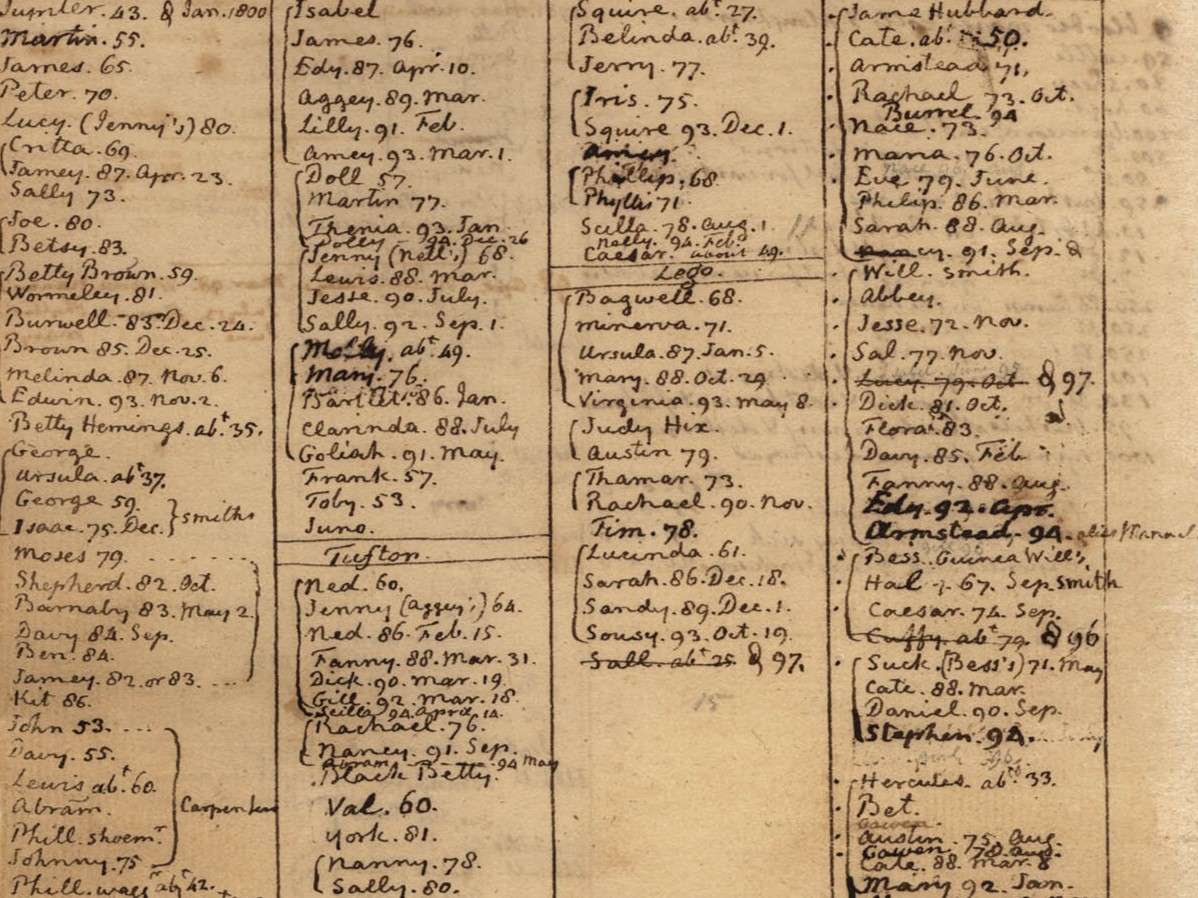 Jupiter. 43. & Jan. 1800
Martin. 55.
James. 65.
Peter. 70.
Lucy. (Jenny's) 80.
Critta. 69.
Jamey. 87. Apr. 23.
Sally 73.
Joe. 80.
Betsy. 83.
Betty Brown. 59.
Wormeley. 81.
Burwell. 83. Dec. 24.
Brown 85. Dec. 25.
Melinda. 87. Nov. 6.
Edwin. 93. Nov. 2.
Betty Hemings. abt 35.
George.
Ursula. abt 37.
George 59.
Isaac. 75. Dec. } smiths
Moses 79.
Shepherd. 82. Oct.
Barnaby 83. May 2.
Davy 84. Sep.
Ben. 84.
Jamey. 82. or 83.
Kit 86.
John 53.
Davy. 55.
Lewis abt 60.
Abram. } Carpenters
Phill. shoemr
Johnny. 75
Phill. waggr abt 42.
Isabel
James. 76.
Edy. 87. Apr. 10.
Aggey. 89. Mar.
Lilly. 91. Feb.
Amey. 93. Mar. 1.
Doll 57.
Martin 77.
Thenia. 93. Jan
Dolly 94. Dec. 26
Jenny (Nell's) 68.
Lewis. 88. Mar.
Jesse. 90. July.
Sally. 92. Sep. 1.
Molly. abt 49.
Mary. 76.
Bartlet. 86. Jan.
Clarinda. 88. July
Goliah. 91. May.
Frank. 57.
Toby. 53.
Juno.
Tufton.
Ned. 60.
Jenny (Aggy's) 64.
Ned. 86. Feb. 15.
Fanny. 88. Mar. 31.
Dick. 90. Mar. 19.
Gill. 92. Mar. 18.
Scilla 94. April 14.
Rachael. 76.
Nancy. 91. Sep.
Abram. 94 May
Black Betty.
Val. 60.
York. 81.
Nanny. 78.
Sally. 80.
Squire. abt 27.
Belinda. abt 39.
Jerry. 77.
Iris. 75.
Squire 93. Dec. 1.
Phillip. 68.
Phyllis 71.
Scilla. 78. Aug. 1
Nelly. 94. Feb.
Caesar. about 49.
Lego.
Bagwell. 68.
Minerva. 71.
Ursula. 87. Jan. 5.
Mary. 88. Oct. 29
Virginia. 93. May 8.
Judy Hix.
Austin 79.
Thamar. 73.
Rachael. 90. Nov.
Tim. 78.
Lucinda. 61.
Sarah. 86. Dec. 18.
Sandy. 89. Dec. 1.
Sousy. 93. Oct. 19.
Sall. abt 25. & 97.
15
Jame Hubbard.
Cate. abt 50.
Armistead 71,
Rachael 73. Oct.
Burrel. 94
Nace. 73.
Maria. 76. Oct.
Eve 79. June.
Philip. 86. Mar.
Sarah. 88. Aug.
Nancy. 91. Sep. 2
Will. Smith.
Abbey.
Jesse. 72. Nov.
Sal. 77. Nov.
Lucy. 79. Oct & 97.
Dick. 81. Oct.
Flora. 83.
Davy. 85. Feb
Fanny. 88. Aug.
Edy. 92. Apr.
Armstead. 94. alias Manuel
Bess. Guinea Will's
Hal 67. Sep. smith
Caesar. 74. Sep.
Cuffy. abt 79. & 96
Suck. (Bess's) 71. May
Cate. 88. Mar.
Daniel. 90. Sep.
Stephen. 94.
Hercules. abt 33.
Bet.
Gawen.
Austin. 75. Aug.
Gawen 78. Aug.
Cate. 88. Mar. 8
Mary 92. Jan.